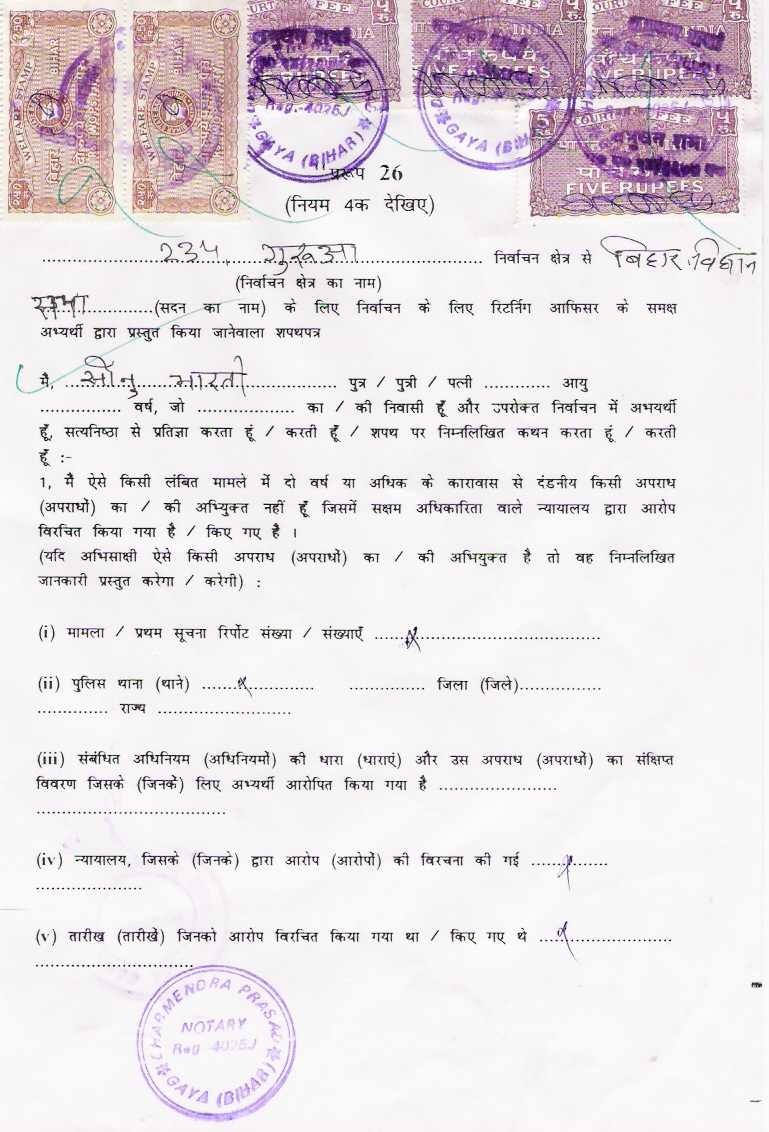 WELFARE STAMP BIHAR
WELFARE STAMP BIHAR
COURT FEE
INDIA
FIVE RUPEES
COURT FEE
INDIA
FIVE RUPEES
COURT FEE
INDIA
FIVE RUPEES
5 Rs. COURT FEE
FIVE RUPEES
Reg.-4025J
GAYA (BIHAR)
GAYA (BIHAR)
प्ररूप 26
(नियम 4क देखिए)
234, गुरूआ निर्वाचन क्षेत्र से बिहार विधान
(निर्वाचन क्षेत्र का नाम)
सभा (सदन का नाम) के लिए निर्वाचन के लिए रिटर्निग आफिसर के समक्ष
अभ्यर्थी द्वारा प्रस्तुत किया जानेवाला शपथपत्र
मै, सोनु भारती पुत्र / पुत्री / पत्नी ............. आयु
............... वर्ष, जो .................. का / की निवासी हूँ और उपरोक्त निर्वाचन में अभयर्थी
हूँ, सत्यनिष्ठा से प्रतिज्ञा करता हूं / करती हूँ / शपथ पर निम्नलिखित कथन करता हूं / करती
हूँ :-
1, मै ऐसे किसी लंबित मामले में दो वर्ष या अधिक के कारावास से दंडनीय किसी अपराध
(अपराधों) का / की अभ्युिक्त नहीं हूँ जिसमें सक्षम अधिकारिता वाले न्यायालय द्वारा आरोप
विरचित किया गया है / किए गए है ।
(यदि अभिसाक्षी ऐसे किसी अपराध (अपराधों) का / की अभियुक्त है तो वह निम्नलिखित
जानकारी प्रस्तुत करेगा / करेगी) :
(i) मामला / प्रथम सूचना रिर्पोट संख्या / संख्याएँ ...............................................
(ii) पुलिस थाना (थाने) ....................... ............... जिला (जिले)................
.............. राज्य ..........................
(iii) संबंधित अधिनियम (अधिनियमों) की धारा (धाराएं) और उस अपराध (अपराधों) का संक्षिप्त
विवरण जिसके (जिनकें) लिए अभ्यर्थी आरोपित किया गया है .......................
.....................................
(iv) न्यायालय, जिसके (जिनके) द्वारा आरोप (आरोपों) की विरचना की गई ...............
.....................
(v) तारीख (तारीखें) जिनको आरोप विरचित किया गया था / किए गए थे ..........................
...............................
CHARMENDRA PRASAD
NOTARY
Reg.-4025J
GAYA (BIHAR)